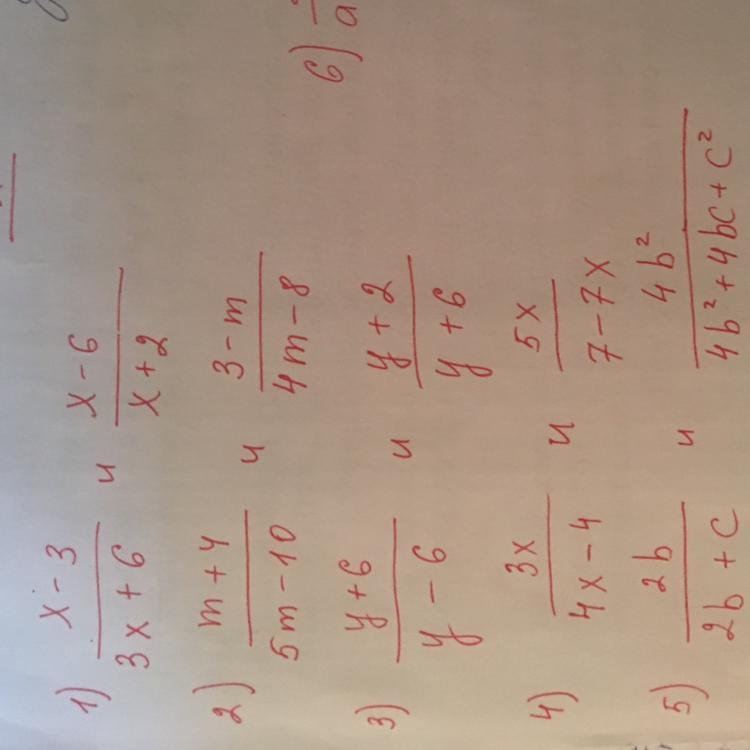 1) x - 3 / 3x + 6 и x - 6 / x + 2
2) m + 4 / 5m - 10 и 3 - m / 4m - 8
3) y + 6 / y - 6 и y + 2 / y + 6
4) 3x / 4x - 4 и 5x / 7 - 7x
5) 2b / 2b + c и 4b² / 4b² + 4bc + c²
6) a